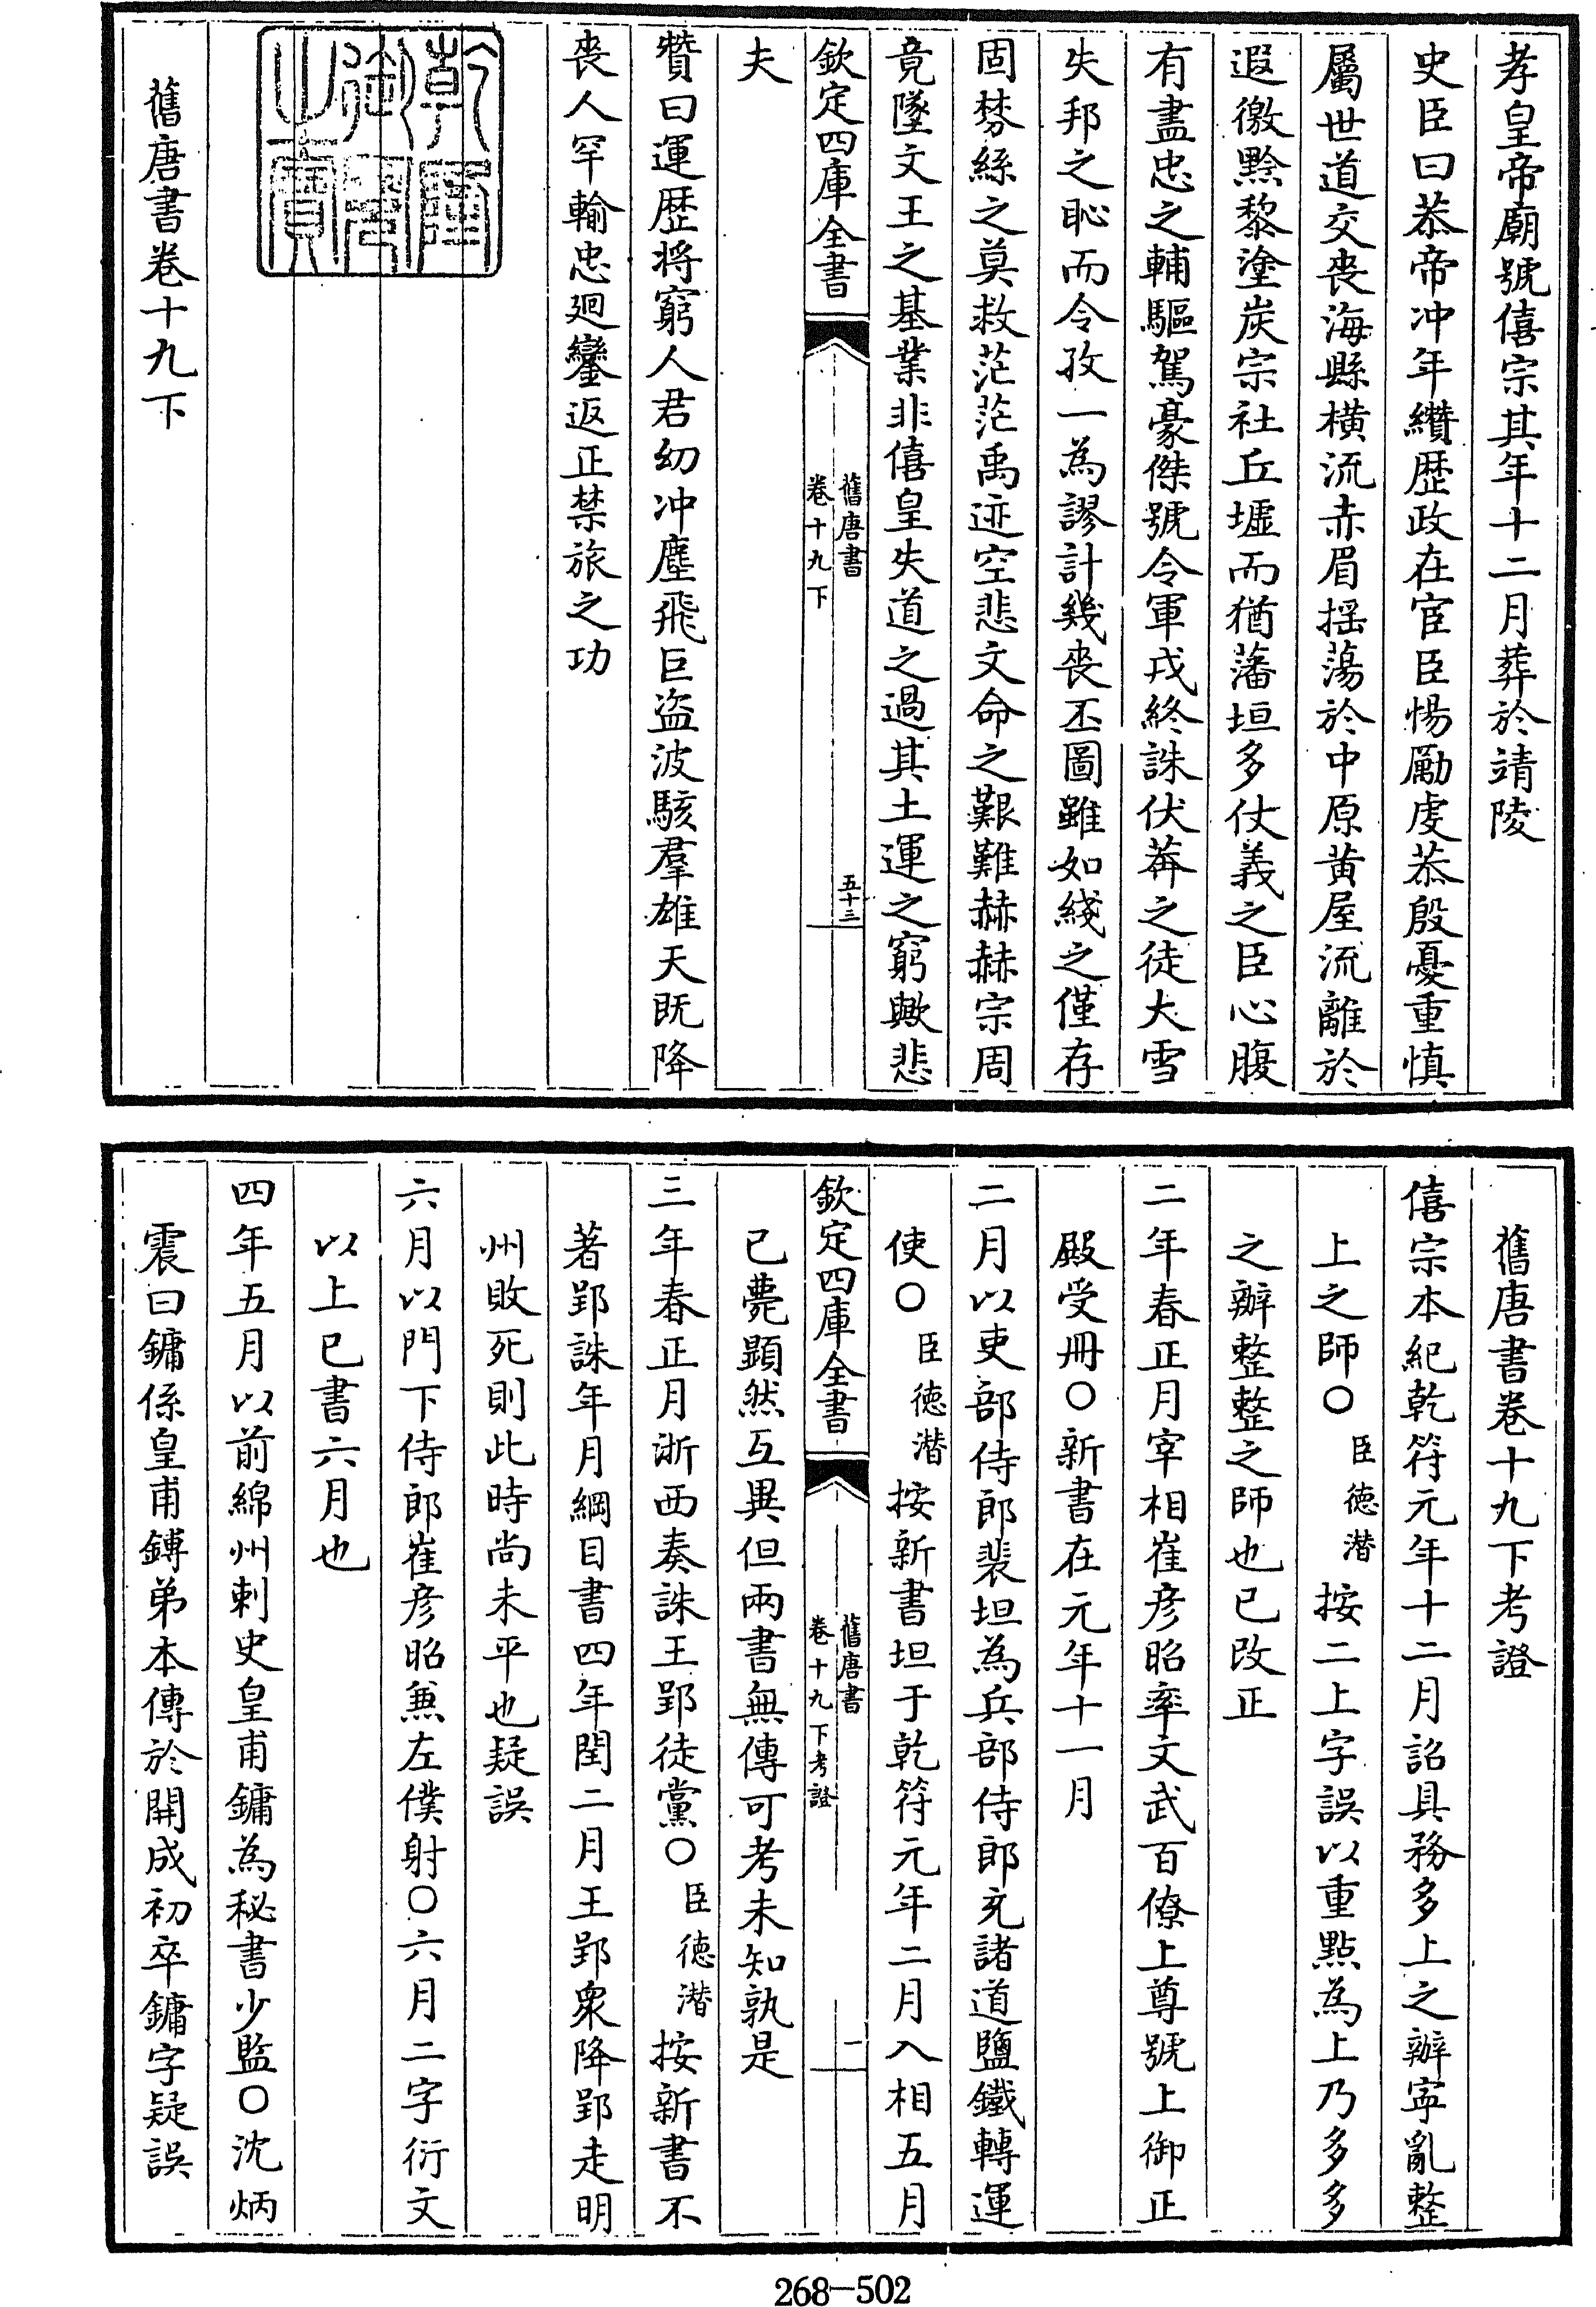 孝皇帝廟號僖宗其年十二月葬於靖陵
史臣曰恭帝冲年纘歴政在宦臣惕勵虔恭殷憂重慎
屬世道交喪海縣横流赤眉揺蕩於中原黄屋流離於
遐徼黔黎塗炭宗社丘墟而猶藩垣多仗義之臣心腹
有盡忠之輔驅駕豪傑號令軍戎終誅伏莽之徒大雪
失邦之恥而令孜一為謬計幾喪丕圖雖如綫之僅存
固棼絲之莫救茫茫禹迹空悲文命之艱難赫赫宗周
竟墜文王之基業非僖皇失道之過其土運之窮歟悲
欽定四庫全書
舊唐書
卷十九下
五十三
夫
贊曰運歴將窮人君幼冲塵飛巨盗波駭羣雄天既降
喪人罕輸忠廻鑾返正禁旅之功
乾隆御覽之寶
舊唐書卷十九下
舊唐書卷十九下考證
僖宗本紀乾符元年十二月詔具務多上之辦寜亂整
上之師〇臣徳潜按二上字誤以重點為上乃多多
之辦整整之師也已改正
二年春正月宰相崔彦昭率文武百僚上尊號上御正
殿受冊〇新書在元年十一月
二月以吏部侍郎裴坦為兵部侍郎充諸道鹽鐵轉運
使〇臣徳潜按新書坦于乾符元年二月入相五月
欽定四庫全書
舊唐書
卷十九下考證
一
已薨顕然互異但兩書無傳可考未知孰是
三年春正月浙西奏誅王郢徒黨〇臣徳潜按新書不
著郢誅年月綱目書四年閏二月王郢衆降郢走明
州敗死則此時尚未平也疑誤
六月以門下侍郎崔彦昭兼左僕射〇六月二字衍文
以上已書六月也
四年五月以前綿州刺史皇甫鏞為秘書少監〇沈炳
震曰鏞係皇甫鎛弟本傳於開成初卒鏞字疑誤
268-502